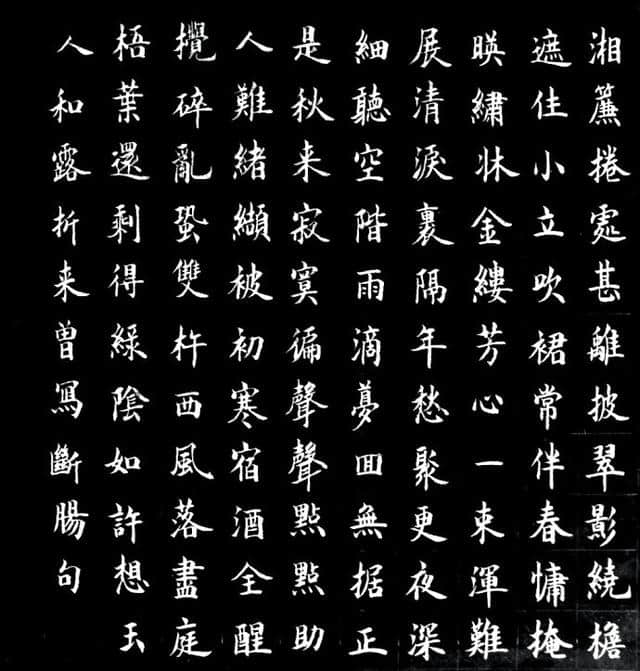 湘簾捲處甚離披翠影繞檐
遮住小立吹裙常伴春慵掩
暎繡牀金縷芳心一束渾難
展清淚裹隔年愁聚更夜深
細聽空階雨滴夢囬無据正
是秋来寂寞偏聲聲點點助
人難緒纈被初寒宿酒全醒
攪碎亂蛩雙杵西風落盡庭
梧葉還剩得綠陰如許想玉
人和露折来曾寫斷腸句